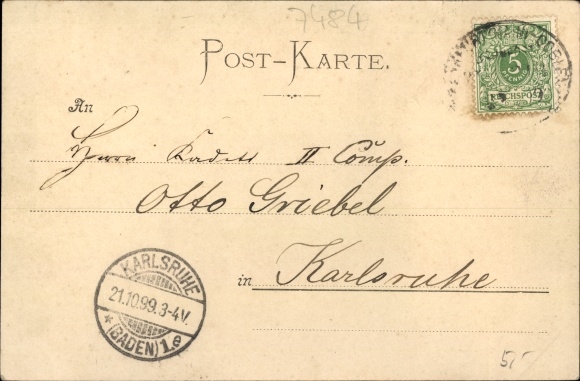 7484
POST-KARTE.
5
REICHSPOST
An
Herrn Kadett II Comp.
Otto Griebel
in Karlsruhe
KARLSRUHE
21.10.99.3-4V.
* (BADEN) 1.e
5,-